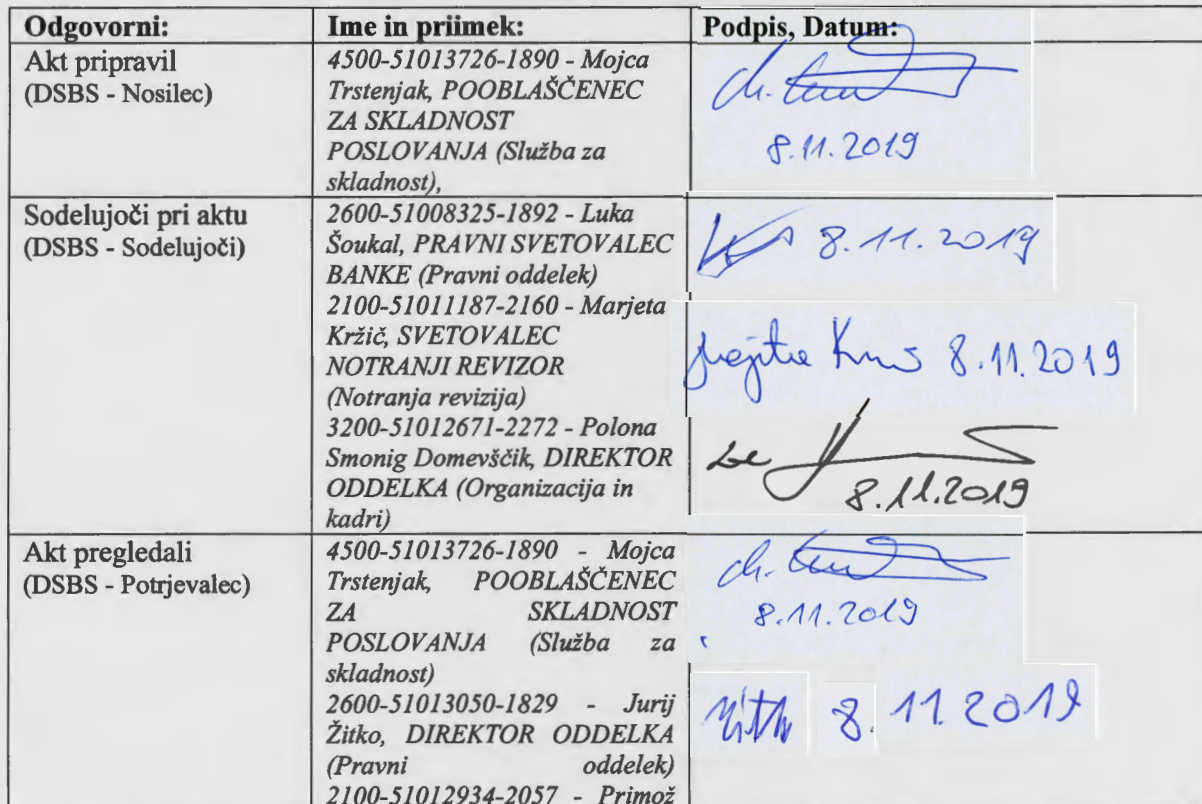 Odgovorni: Ime in priimek: Podpis, Datum:
Akt pripravil
(DSBS - Nosilec)
4500-51013726-1890 - Mojca
Trstenjak, POOBLAŠČENEC
ZA SKLADNOST
POSLOVANJA (Služba za
skladnost),
8.11.2019
Sodelujoči pri aktu
(DSBS - Sodelujoči)
2600-51008325-1892 - Luka
Šoukal, PRAVNI SVETOVALEC
BANKE (Pravni oddelek)
2100-51011187-2160 - Marjeta
Kržič, SVETOVALEC
NOTRANJI REVIZOR
(Notranja revizija)
3200-51012671-2272 - Polona
Smonig Domevščik, DIREKTOR
ODDELKA (Organizacija in
kadri)
8.11.2019
8.11.2019
8.11.2019
Akt pregledali
(DSBS - Potrjevalec)
4500-51013726-1890 - Mojca
Trstenjak, POOBLAŠČENEC
ZA SKLADNOST
POSLOVANJA (Služba za
skladnost)
2600-51013050-1829 - Jurij
Žitko, DIREKTOR ODDELKA
(Pravni oddelek)
2100-51012934-2057 - Primož
8.11.2019
8. 11 2019